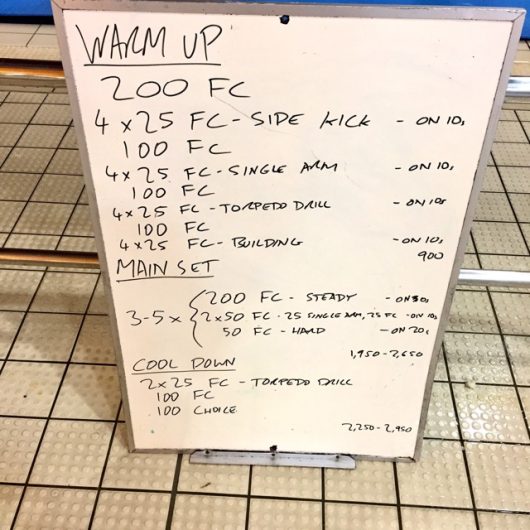 WARM UP
200 FC
4 x 25 FC - SIDE KICK - ON 10s
100 FC
4 x 25 FC - SINGLE ARM - ON 10s
100 FC
4 x 25 FC - TORPEDO DRILL - ON 10s
100 FC
4 x 25 FC - BUILDING - ON 10s
900
MAIN SET
200 FC - STEADY - ON 30s
3-5 x { 2 x 50 FC - 25 SINGLE ARM, 25 FC - ON 10s
50 FC - HARD - ON 20s
1,950 - 2,650
COOL DOWN
2 x 25 FC - TORPEDO DRILL
100 FC
100 CHOICE
2,250 - 2,950